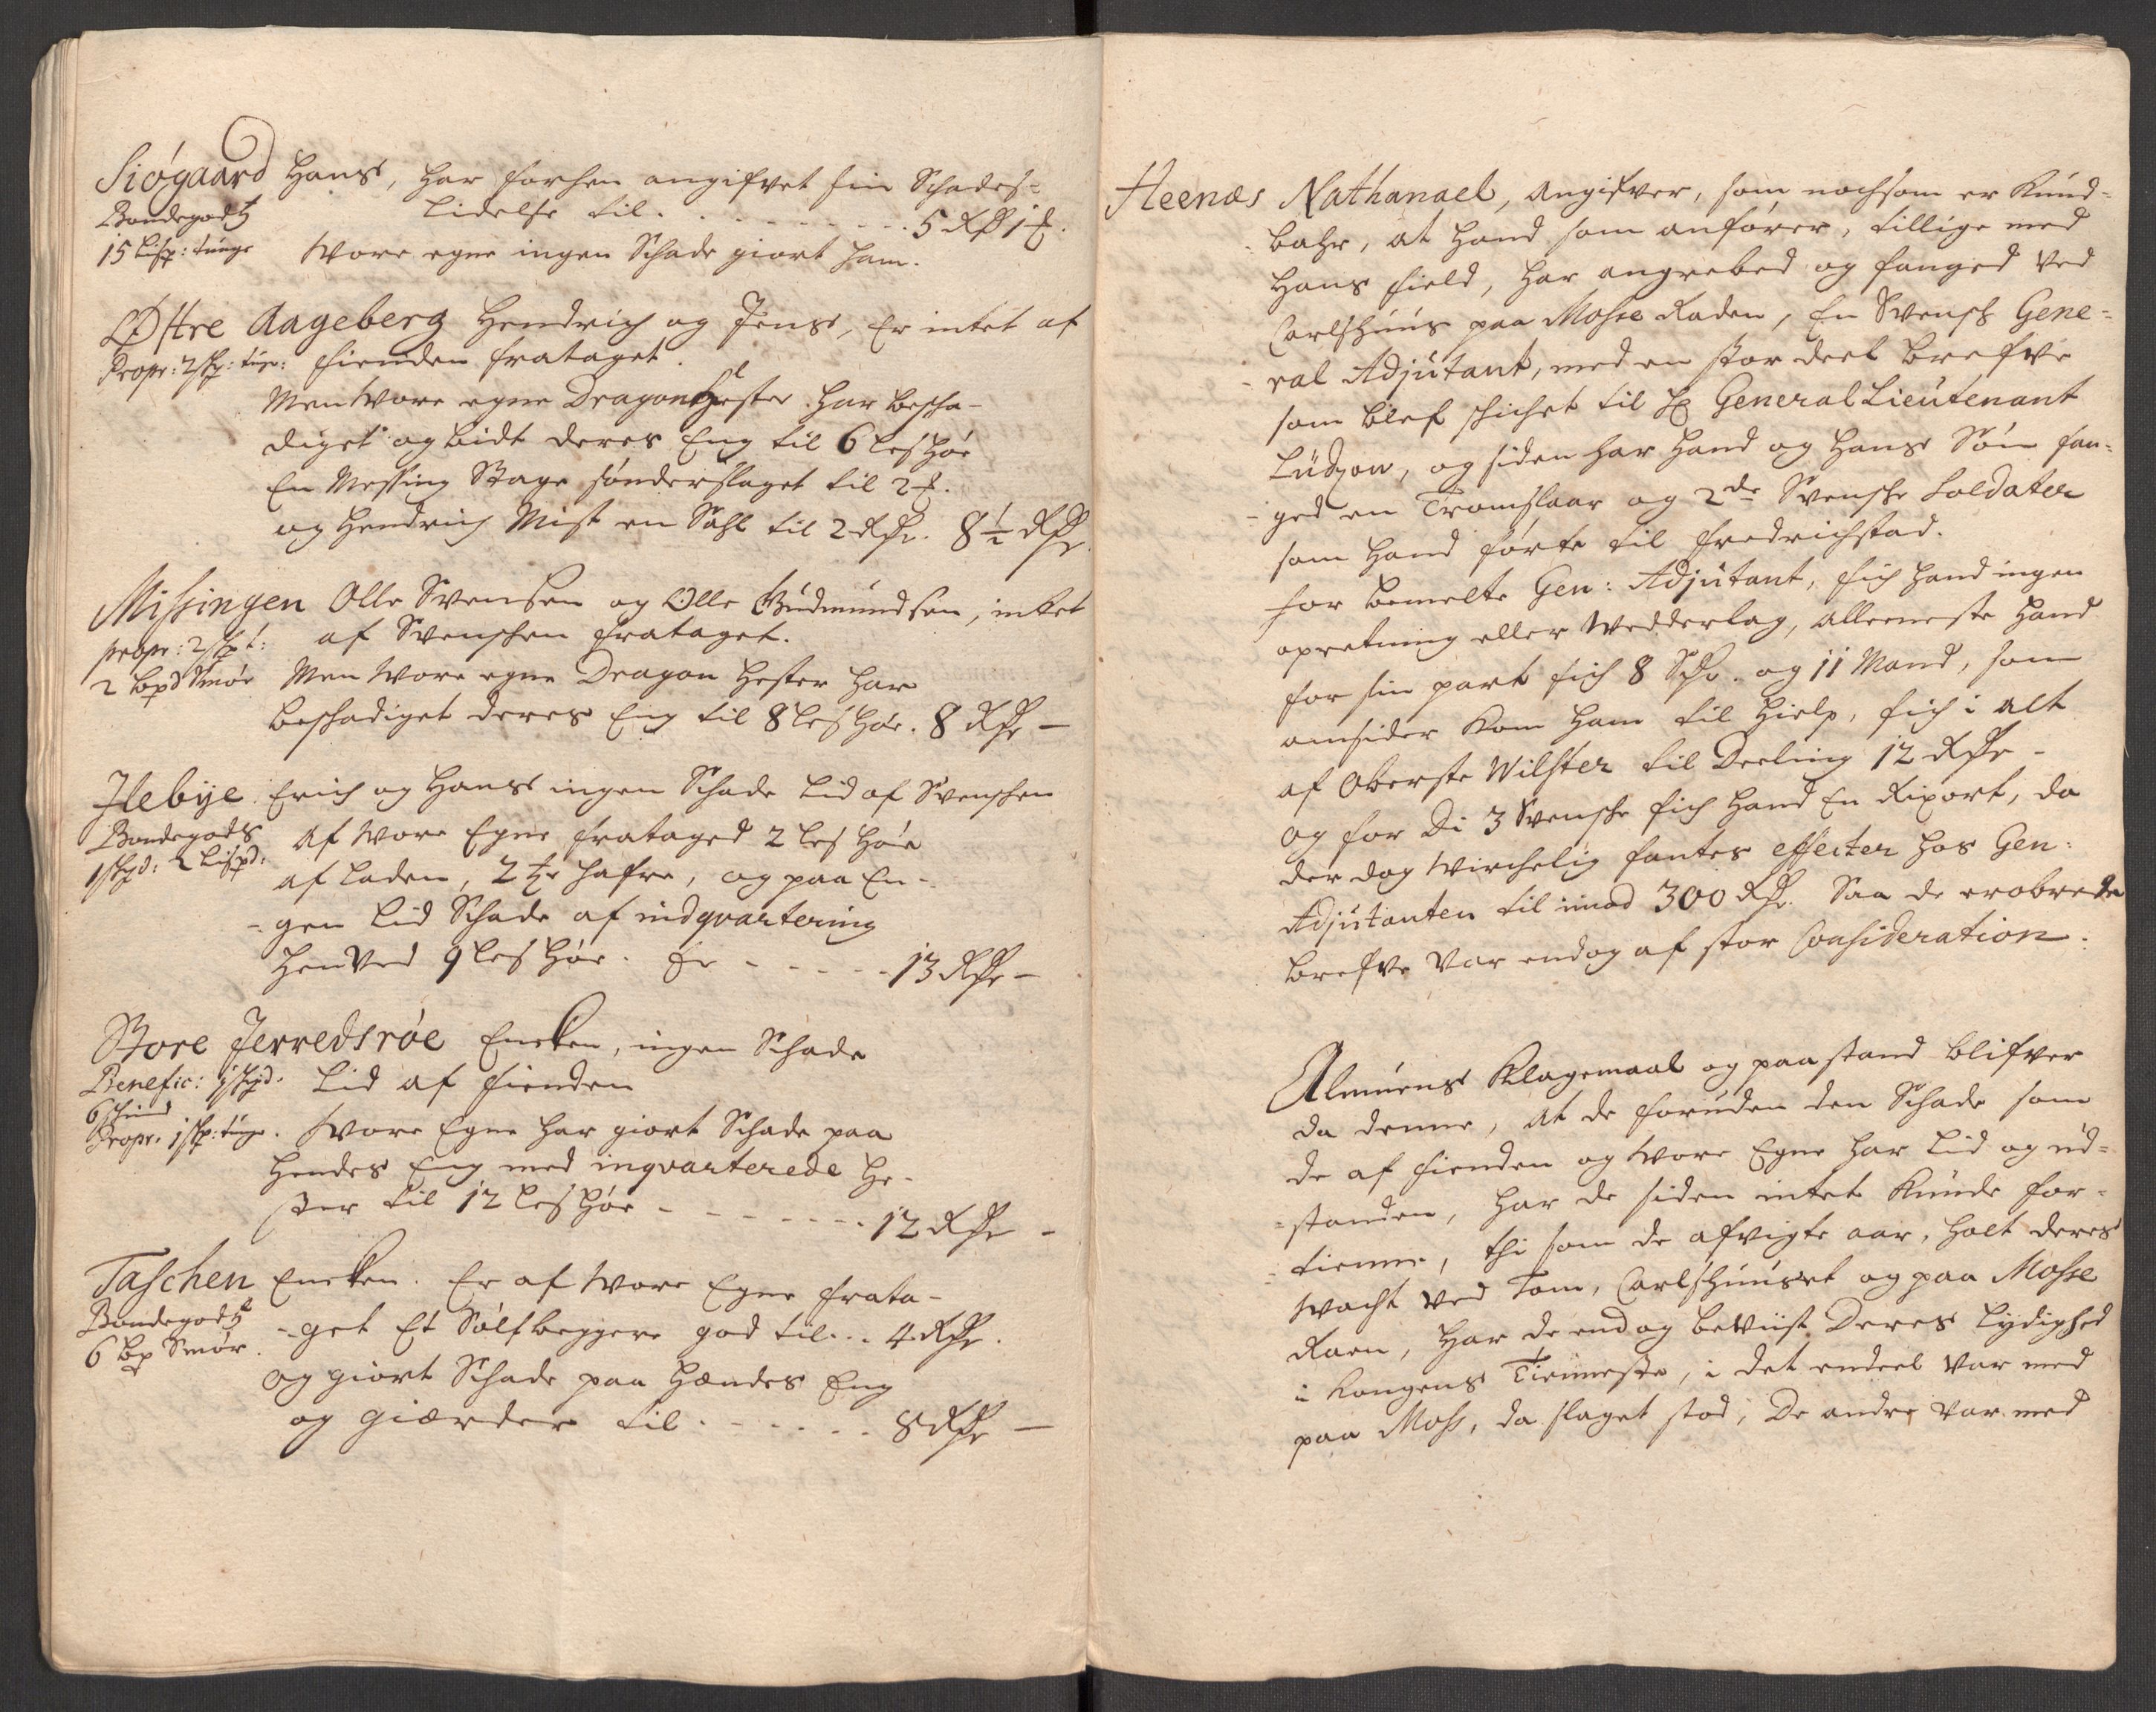 Siógaard Hans, har forhen angifvet sin Schades-
Bondegodtz lidelse til. . . . . . . . 5 Rdr 1 ort.
15 Lisp: tunge Wore egne ingen Schade giort ham.
Østre Aageberg Hendrich og Jens, Er intet af
Propr: 2 skp: tun: fienden frataget.
Men Wore egne Dragon Hester har bescha-
diget og bidt deres Eng til 6 les høe
En Messing Stage sønderslaget til 2 ort.
og Hendrich Mist en Sahl til 2 Rdr. 8½ Rdr
Missingen Olle Svensen og Olle Gudmundsen, intet
propr: 2 skp t: af Svenschen frataget.
2 bpd Smør Men Wore egne Dragon Hester har
beschadiget deres Eng til 8 les høe. 8 Rdr —
Ilebye Erich og Hans ingen Schade lid af Svenschen
Bondegods af Wore Egne frataged 2 les høe
1 skpd: 2 Lispd: af laden, 2 tr hafre, og paa En-
-gen lid Schade af indqvartering
henved 9 les høe. Er - - - - - 13 Rdr —
Store Jerredsrøe Encken, ingen Schade
Benefic: 1 skpd. lid af fienden
6 schind
Propr. 1 skp: tung. Wore Egne har giort Schade paa
hendes Eng med inqvarterede He-
ster til 12 les høe - - - - - - - 12 Rdr -
Taschen Encken. Er af Wore Egne frata-
Bondegodtz -get Et Sølfbeggere god til . . . 4 Rdr.
6 bp Smør.
og giort Schade paa hændes Eng
og giærder til . - - . . . 8 Rdr —
Heenæs Nathanael, Angifver, som nochsom er Kund-
-bahr, at hand som anfører, tillige med
Hans field, har angrebed og fanged ved
Carlshuus paa Mosse Raden, En Svensch Gene-
-ral Adjutant, med en stor deel brefve
som blef schichet til Hr General Lieutenant
Lüdzow, og siden har hand og hans Søn fan-
-ged en Tromslaar og 2de Svensche Soldater
som hand førte til fredrichstad.
for bemelte Gen: Adjutant, fich hand ingen
opretning eller Wedderlag, alleeneste hand
for sin part fich 8 Rdr. og 11 Mand, som
omsider kom ham til hielp, fich i alt
af Oberste Wilster til Deeling 12 Rdr -
og for Di 3 Svensche fich hand En Rixort, da
der dog Wirchelig fantes effecter hos Gen:
Adjutanten til imod 300 Rdr. Saa de erobrede
brefve var endog af stor Consideration.
Almuens Klagemaal og paastand blifver
da denne, at de foruden den Schade som
de af fienden og Wore Egne har lid og ud-
-standen, har de siden intet kunde for-
-tienne, thi som de afvigte aar, holt deres
Wacht ved Tom, Carlshuuset og paa Mosse
Raen, har de endog beviist Deres lydighed
i Kongens Tienneste, i det endeel var med
paa Moss, da slaget stod, De andre var med